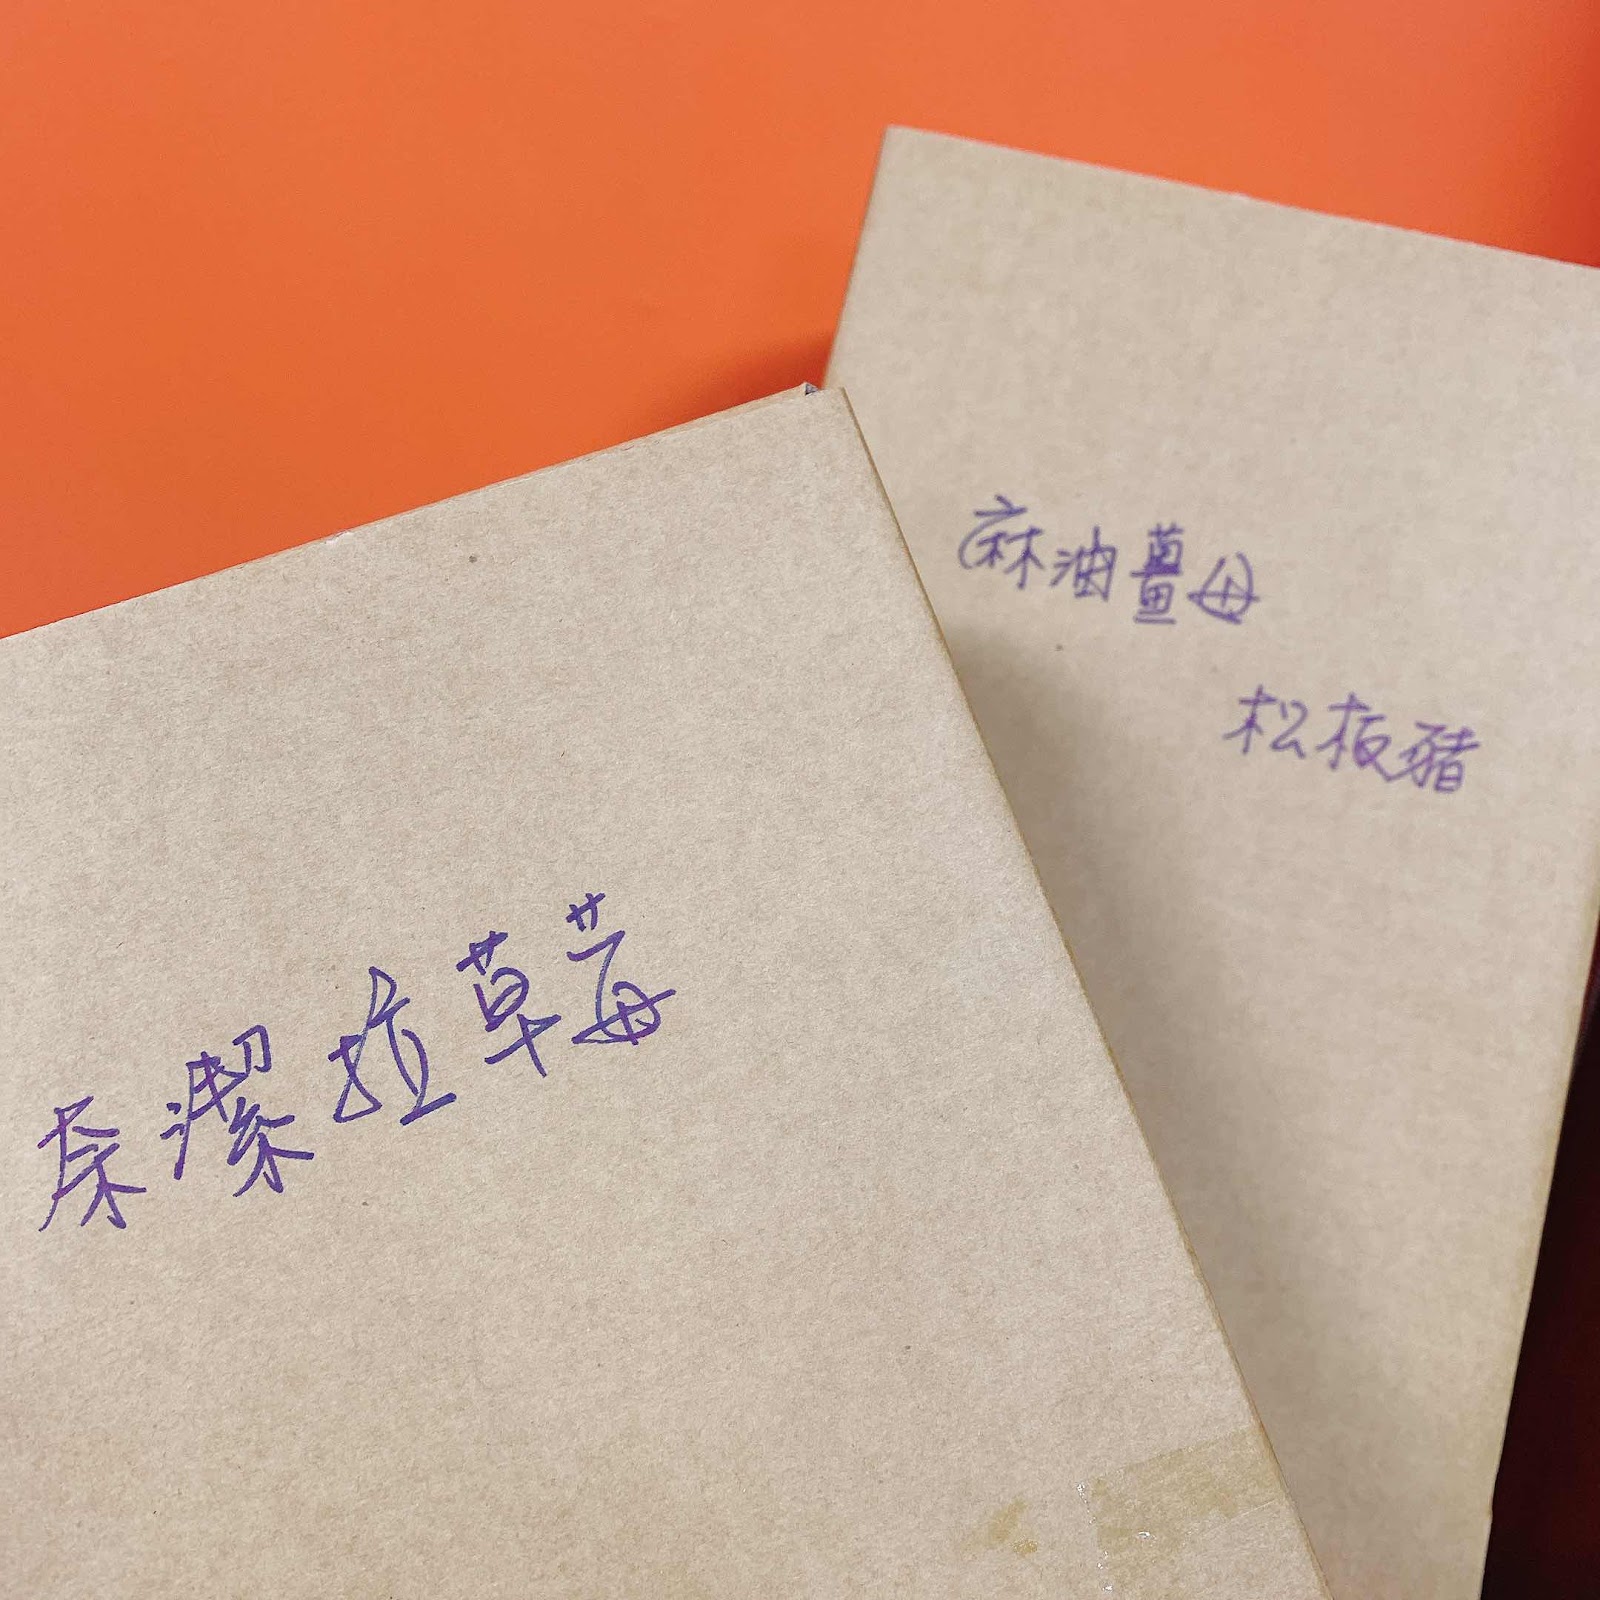 麻油薑母
松板豬
奈潔拉草莓